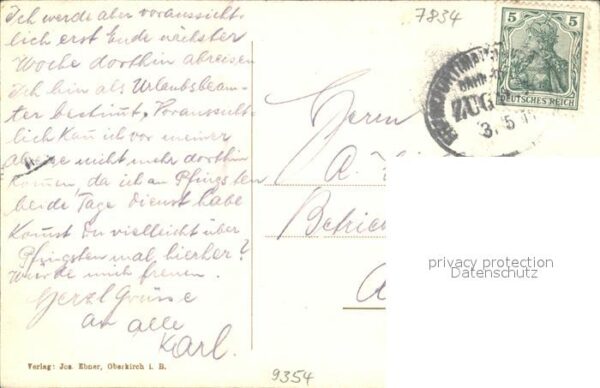 Ich werde aber voraussicht-
lich erst Ende nächster
Woche dorthin abreisen
Ich bin als Urlaubsbeam-
ter bestimmt. Voraussicht-
lich kan ich vor meiner
Abreise nicht mehr dorthin
kommen, da ich an Pfingsten
beide Tage Dienst habe
Komst Du vielleicht über
Pfingsten mal hierher?
Würde mich freuen.
Herzl Grüsse
an alle
Karl.
Verlag: Jos. Ebner, Oberkirch i. B.
7834
5 5
DEUTSCHES REICH
ZUG
3. 5
Herrn
A.
Betrie
A
privacy protection
Datenschutz
9354